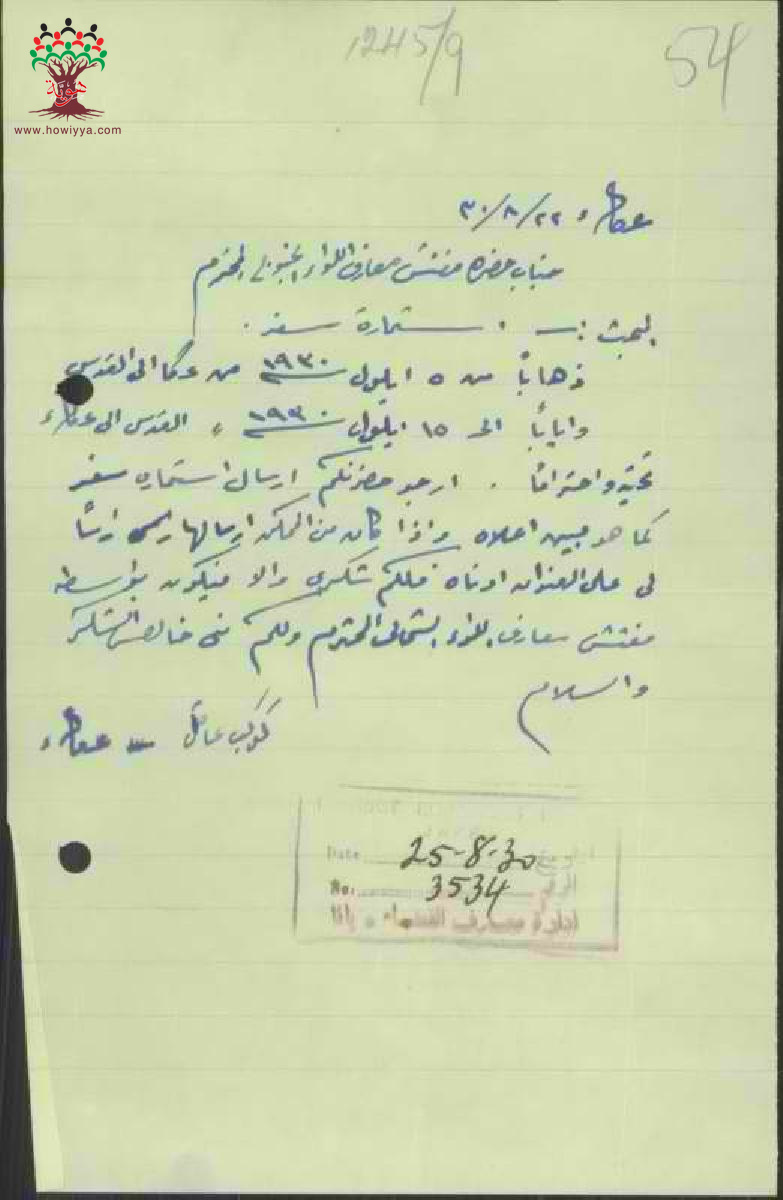 1245/9
54
هوية
www.howiyya.com
عكاء ٢٢/٨/٣٠
جناب حضرة مفتش معارف اللواء الجنوبي المحترم
البحث :ـ استمارة سفر .
ذهاباً من ٥ ايلول ١٩٣٠ من عكا الى القدس
واياباً الى ١٥ ايلول ١٩٣٠ ، القدس الى عكاء
تحية واحتراماً . ارجو حضرتكم ارسال استمارة سفر
كما هو مبين اعلاه واذا كان من الممكن ارسالها رأساً
لي على العنوان ادناه فلكم شكري والا فيكون بواسطة
مفتش معارف اللواء الشمالي المحترم ولكم مني خالص الشكر
والسلام
كوكب ــ عكاء
Date 25-8-30
No. 3534 الرقم
ادارة معارف القضاء . يافا